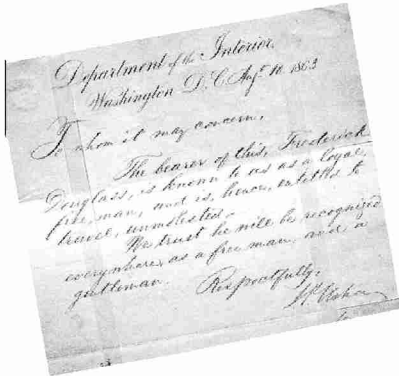 Department of the Interior.
Washington D.C. Augt 10. 1863
To whom it may concern,
The bearer of this, Frederick
Douglass, is known to us as a loyal,
free, man, and is, hence, entitled to
travel, unmolested.
We trust he will be recognized
everywhere, as a free man, and a
gentleman.
Respectfully,
J.P. Usher